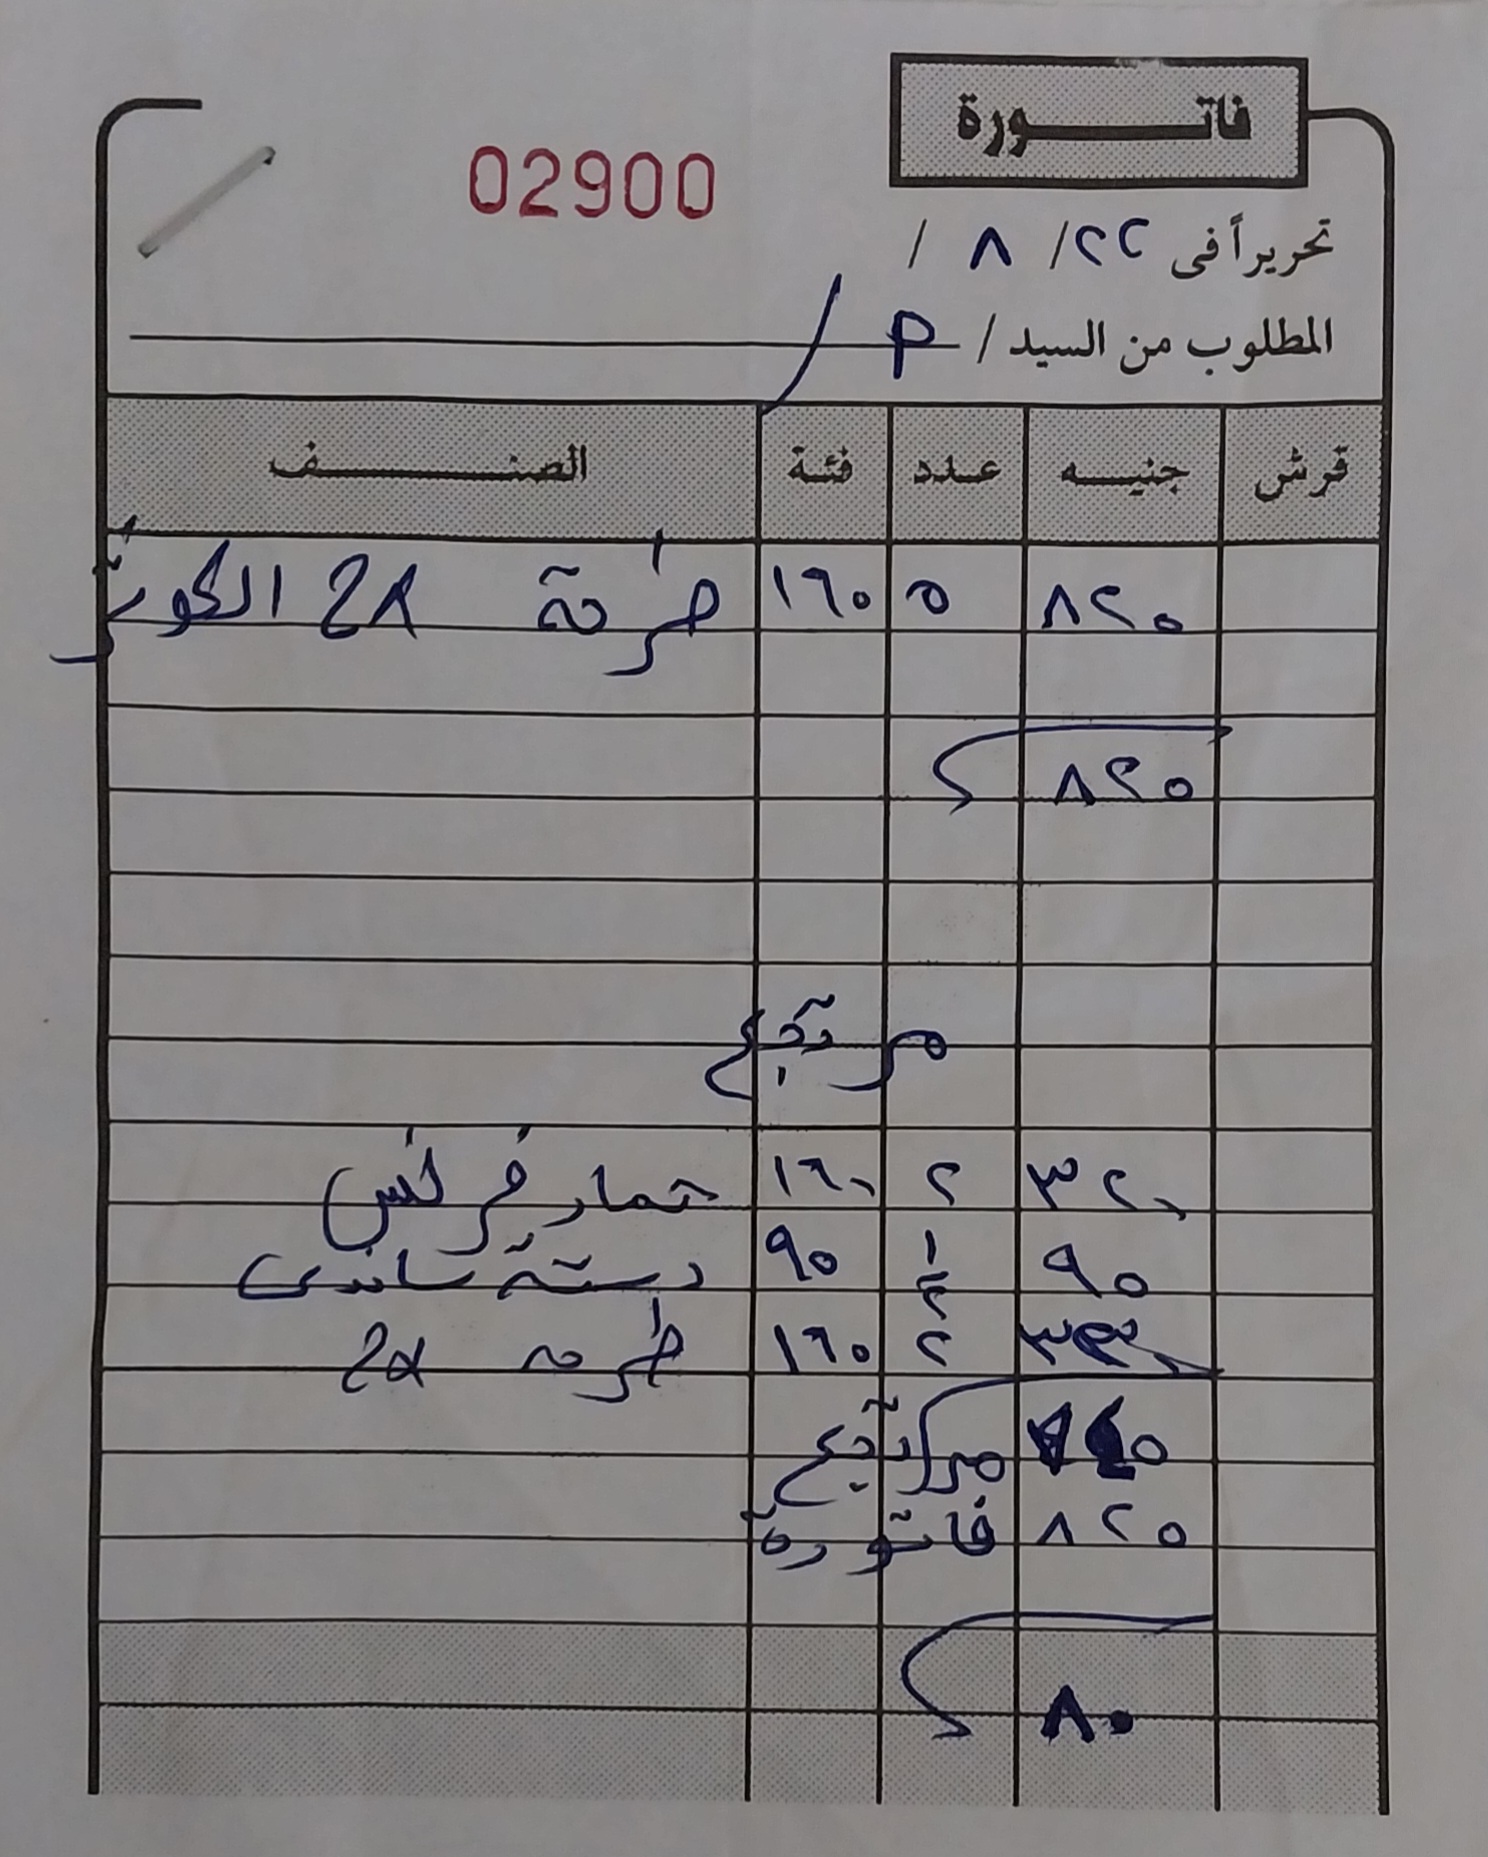 فاتورة
02900
تحريراً فى ٢٢ / ٨ /
المطلوب من السيد / م
قرش جنيه عدد فئة الصنف
٨٢٠ ٥ ١٦٠ طرحة ٢٨ الكوثر
٨٢٠
مرتجع
٣٢٠ ٢ ١٦٠ خمار فرنس
٩٠ ١ ٩٠ دستة ساندى
٣٢٠ ٢ ١٦٠ طرحه ٢٨
مرتجع
٨٢٠ فاتورة
٨٠